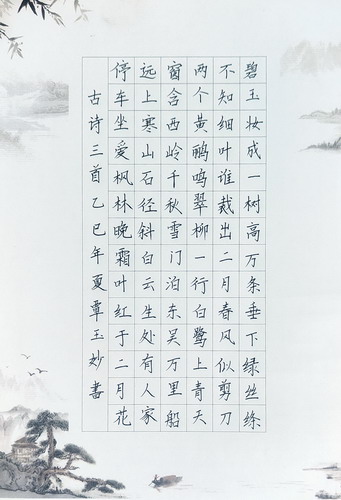 碧玉妆成一树高万条垂下绿丝绦
不知细叶谁裁出二月春风似剪刀
两个黄鹂鸣翠柳一行白鹭上青天
窗含西岭千秋雪门泊东吴万里船
远上寒山石径斜白云生处有人家
停车坐爱枫林晚霜叶红于二月花
古诗三首乙巳年夏覃玉妙书